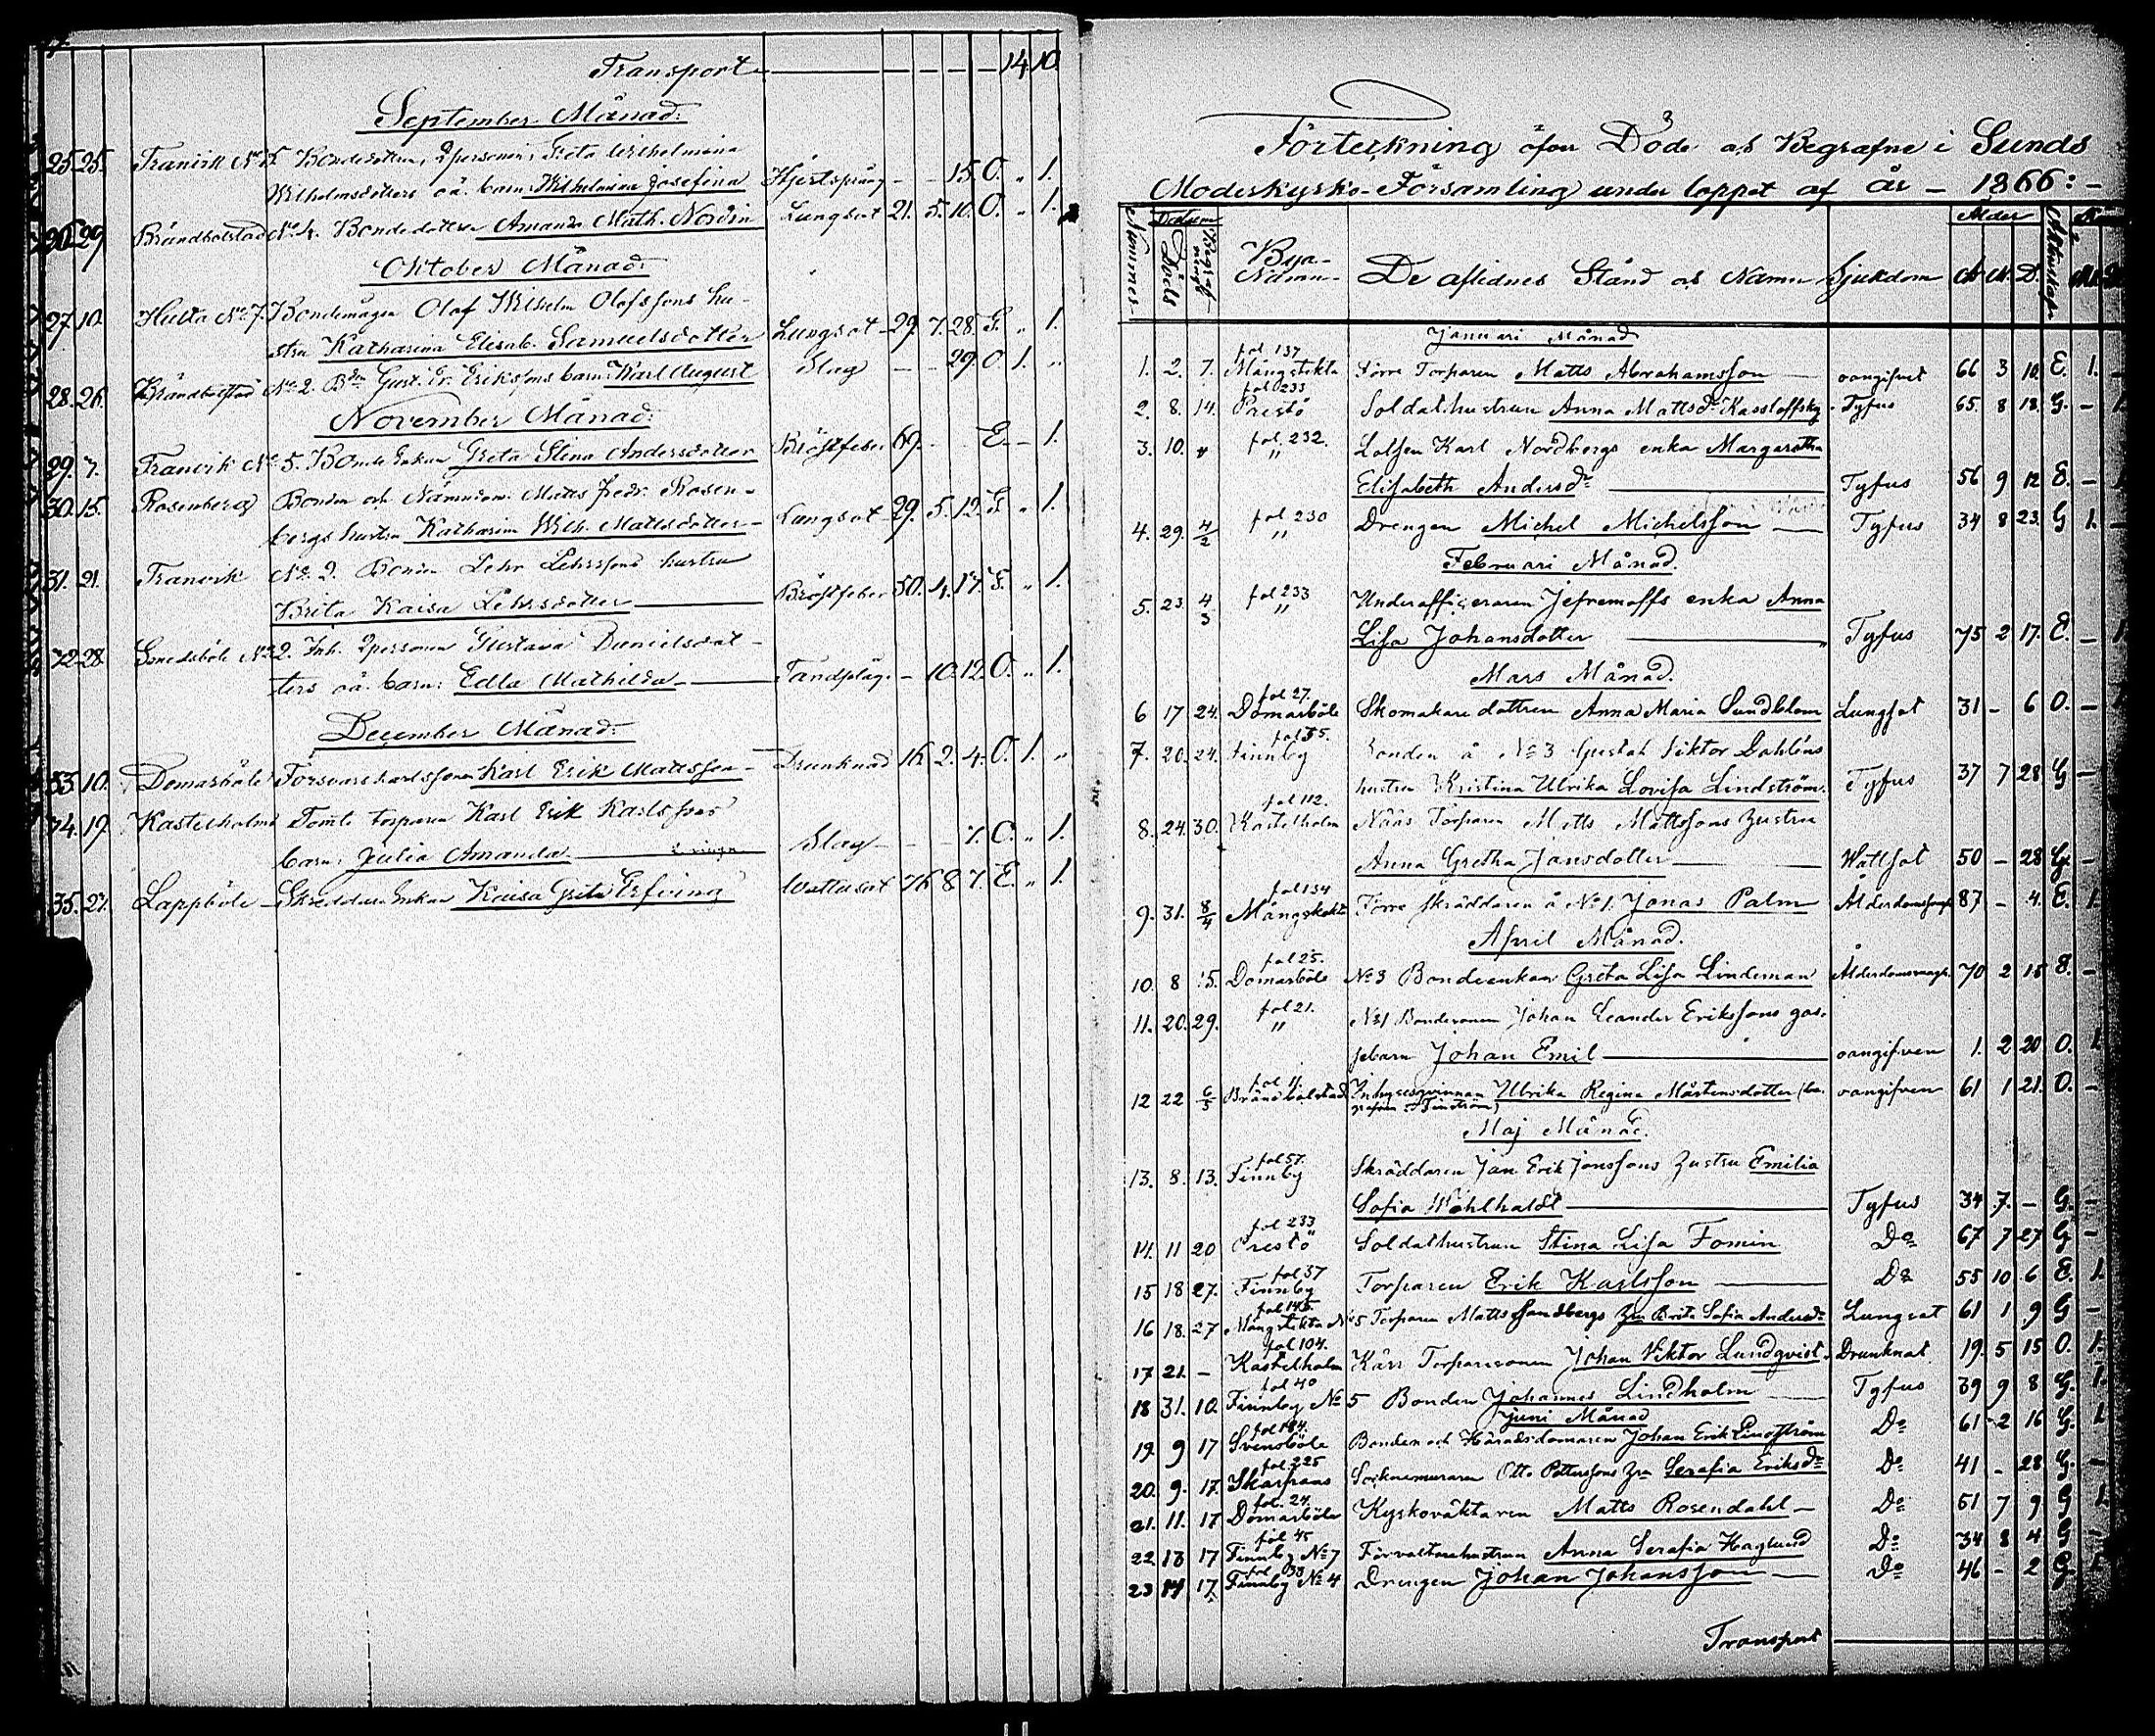 Transport — — — — — 14 10.
September Månad.
25. 25. Tranvik No 5 Bondedottern, Greta Wilhelmina
Wilhelmsdotters oä. barn: Wilhelmina Josefina Hjertsprång - - 15. O. „ 1.
29 Brändbolstad No 4. Bondedottern Amanda Math. Nordin Lungsot 21. 5. 10. O. „ 1.
Oktober Månad.
27. 10. Hulta No 7. Bondemågen Olof Wilhelm Olofssons hu-
stru Katharina Elisab. Samuelsdotter Lungsot - 29. 7. 28. G. „ 1.
28. 26. Brändbolstad No 2. Gust. Er. Erikssons barn: Karl August Slag - - 29. O 1. „
November Månad.
29. 7. Tranvik No 5. Bonde Enkan Greta Stina Andersdotter Bröstfeber 69. - - E. - 1.
30. 15. Rosenberg Bonden och Nämndem. Matts Fredr. Rosen-
bergs hustru Katharina Wilh. Mattsdotter - Lungsot - 29. 5. 12. G. „ 1.
31. 21. Tranvik No 2. Bonden Lehr Lehrssons hustru
Brita Kaisa Lehrsdotter — Bröstfeber 50. 4. 17. G. „ 1.
28. No 2. Inh. Gustava Danielsdot-
ters oä. barn: Edla Mathilda — Tandplåg. - 10. 12. O. „ 1.
December Månad.
33 10. Domarböle Karl Erik Mattsson - Drunknad 16 2. 4. O. 1. „
34. 19. Kastelholm Tomts torparen Karl Erik Karlssons
barn: Julia Amanda — Slag - - 7. O. „ 1.
35. 27. Lappböle - Skräddare Enkan Kaisa Greta Erfving Wattusot 76 8 7. E. „ 1.
Förteckning öfver Döde och Begrafne i Sunds
Moderkyrko-Församling under loppet af år - 1866: -
Nummer Datum Döds Begraf-nings By- Namn De aflidnes Stånd och Namn Sjukdom Ålder År M. D.
Januari Månad
fol 137
1. 2. 7. Mångstekta Förre Torparen Matts Abrahamsson — oangifvet 66 3 10. E. 1. -
fol 233
2. 8. 14. Prestö Soldathustrun Anna Mattsdr Kassloffsky - Tyfus 65. 8 18. G. - 1.
fol. 232.
3. 10. „ „ Lotsen Karl Nordbergs enka Margaretha
Elisabeth Andersdr — Tyfus 56 9 12 E. - 1.
fol 230
4. 29. 4/2 „ Drengen Michel Michelsson — Tyfus 34 8 23. G 1. -
Februari Månad.
fol 233
5. 23. 4/3 „ Underofficeraren Jefremoffs enka Anna
Lisa Johansdotter — Tyfus 75 2 17. E. - 1.
Mars Månad.
fol 27.
6 17 24. Domarböle Skomakaredottren Anna Maria Sundblom Lungsot 31 - 6 O. - 1
fol 55.
7. 20. 24. Finnby Bonden å No 3 Gustaf Viktor Dahléns
hustru Kristina Ulrika Lovisa Lindström. Tyfus 37 7 28 G -
fol 112.
8. 24. 30. Kastelholm Näås Torparen Matts Mattssons hustru
Anna Gretha Jansdotter — Wattsot 50 - 28 G. -
fol 134
9. 31. 8/4 Mångstekta Förre skräddaren å No 1. Jonas Palm Ålderdomssvagh 87 - 4. E. 1.
April Månad.
fol 25.
10. 8 15. Domarböle No 3 Bondeenkan Greta Lisa Lindeman Ålderdomssvagh. 70 2 15 E. -
fol 21.
11. 20. 29. „ No 1 Bondesonen Johan Leander Erikssons gos-
sebarn Johan Emil — oangifven 1. 2 20 O. 1.
fol 11.
12 22 6/5 Brändbolstad Inhyseqvinnan Ulrika Regina Mårtensdotter (be- oangifven 61 1 21. O. -
grafven i Finström)
Maj Månad.
fol 57.
13. 8. 13. Finnby Skräddaren Jan Erik Jonssons hustru Emilia
Sofia — Tyfus 34. 7. - G. -
fol 233
14. 11 20 Prestö Soldathustrun Stina Lisa Fomin Do 67 7 27 G -
fol 37
15 18 27. Finnby Torparen Erik Karlsson — Do 55 10 6 E. 1.
fol 145.
16 18. 27 Mångstekta No 5 Torparen Matts Sandbergs hru Brita Sofia Andersdr Lungsot 61 1 9 G -
fol 104.
17 21. - Kastelholm Kärr Torparesonen Johan Viktor Lundqvist. Drunknat. 19. 5 15 O. 1.
fol 40
18 31. 10. Finnby No 5 Bonden Johannes Lindholm — Tyfus 39 9 8 G. 1.
Juni Månad
fol 184.
19. 9 17 Svensböle Bonden och Häradsdomaren Johan Erik Lindström Do 61 - 2 16 G. 1
fol 225
20. 9. 17. Skarpans Socknemuraren Otto Petterssons hru Serafia Eriksdr Do 41 - 28 G. -
fol. 24.
21. 11. 17 Domarböle Kyrkovaktaren Matts Rosendahl — Do 51 7 9 G 1.
fol 45
22 13 17 Finnby No 7 Förvaltarehustrun Anna Serafia Haglund Do 34 8 4 G -
fol 38
23 14 17. Finnby No 4 Drengen Johan Johansson — Do 46 - 2 G. 1.
Transport —